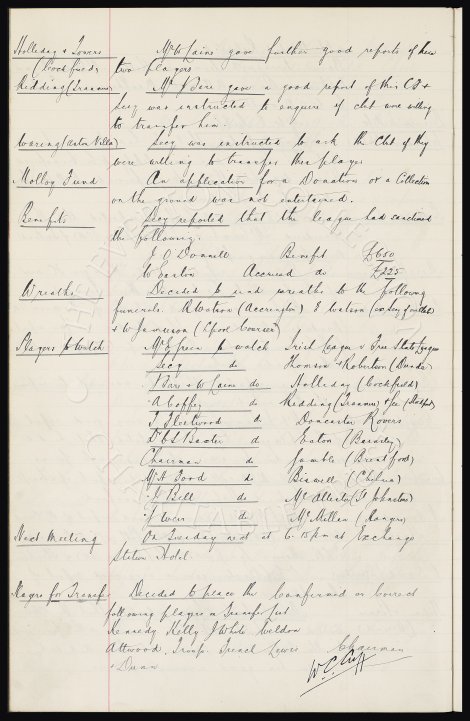 Holliday & Towers Mr W Lains gave further good reports of these
(Cockfield) two players
Redding (Tranmere) Mr Bare gave a good report of this CH &
Secy was instructed to enquire if club were willing
to transfer him.
Waring (Aston Villa) Secy was instructed to ask the Club if they
were willing to transfer this player
Molloy Fund An application for a Donation or a Collection
on the ground was not entertained.
Benefits Secy reported that the league had sanctioned
the following.
J O Donnell Benefit £650
Accrued do £225
Wreaths Decided to send wreaths to the following
funerals. R Watson (Accrington) E Watson
& W Jamieson (L'pool Courier)
Players to Watch Mr E Green to watch Irish League v Free State League
Secy do Thomson & Robertson (Dundee)
J Bare & W Laine do Holliday (Cockfield)
A Coffey do Redding (Tranmere) & Lee
T Fleetwood do Doncaster Rovers
Dr C S Baxter do Eaton (Barnsley)
Chairman do Gamble (Brentford)
do (Chelsea)
J Bell do (St Johnstone)
J Weir do McMillan (Rangers)
Next Meeting On Tuesday next at 6.15pm at Exchange
Station Hotel.
Players for Transfer Decided to place the Confirmed as Correct
following players on Transfer List
Kennedy Kelly J White Weldon
Attwood, Troup French Lewis Chairman
& Dunn W.C. Cuff